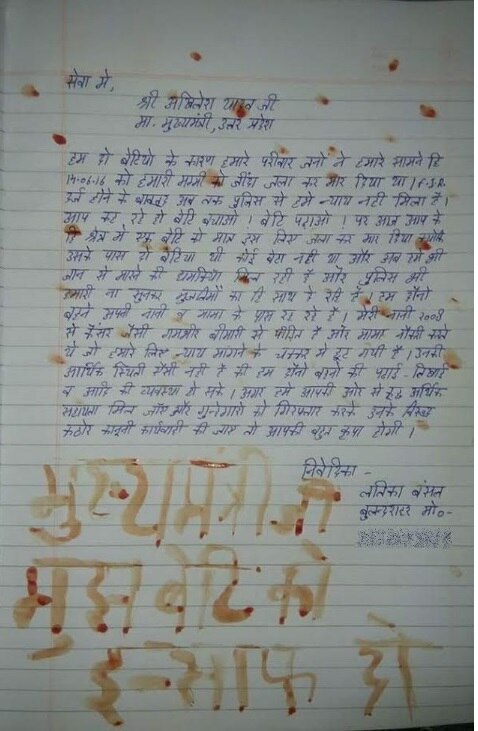 सेवा मे,
श्री अखिलेश यादव जी
मा. मुख्यमंत्री, उत्तर प्रदेश
हम दो बेटियो के कारण हमारे परीवार जनो ने हमारे सामने हि
14-06-16 को हमारी मम्मी को जींदा जला कर मार दिया था। F.I.R
दर्ज होने के बावजूद अब तक पुलिस से हमे न्याय नही मिला है।
आप कह रहे हो बेटि बचाओ। बेटि पढाओ। पर आज आप के
हि क्षेत्र मे एक बेटि को मात्र इस लिए जला कर मार दिया क्योकि
उसके पास दो बेटिया थी कोई बेटा नही था और अब हमे भी
जान से मारने की धमकिया मिल रही है और पुलिस भी
हमारी ना सुनकर मुजरिमों का हि साथ दे रही है। हम दोनो
बहने अपनी नानी व मामा के पास रह रहे है। मेरी नानी 2003
से कैंसर जैसी गम्भीर बीमारी से पीडित है और मामा नौकरी करते
थे जो हमारे लिए न्याय मांगने के चक्कर मे छूट गयी है। उनकी
आर्थिक स्थिती ऐसी नही है की हम दोनो बहनो की पढाई लिखाई
व आदि की व्यवस्था हो सके। अगर हमे आपकी ओर से कुछ आर्थिक
सहायता मिल जाए और गुन्हेगारो को गिरफ्तार करके उनके विरुद्ध
कठोर कानूनी कार्यवाही की जाए तो आपकी बहुत कृपा होगी।
निवेदिका -
लतिका बंसल
बुलन्दशहर मो०-
मुख्यमंत्री जी
मुझ बेटि को
इन्साफ दो